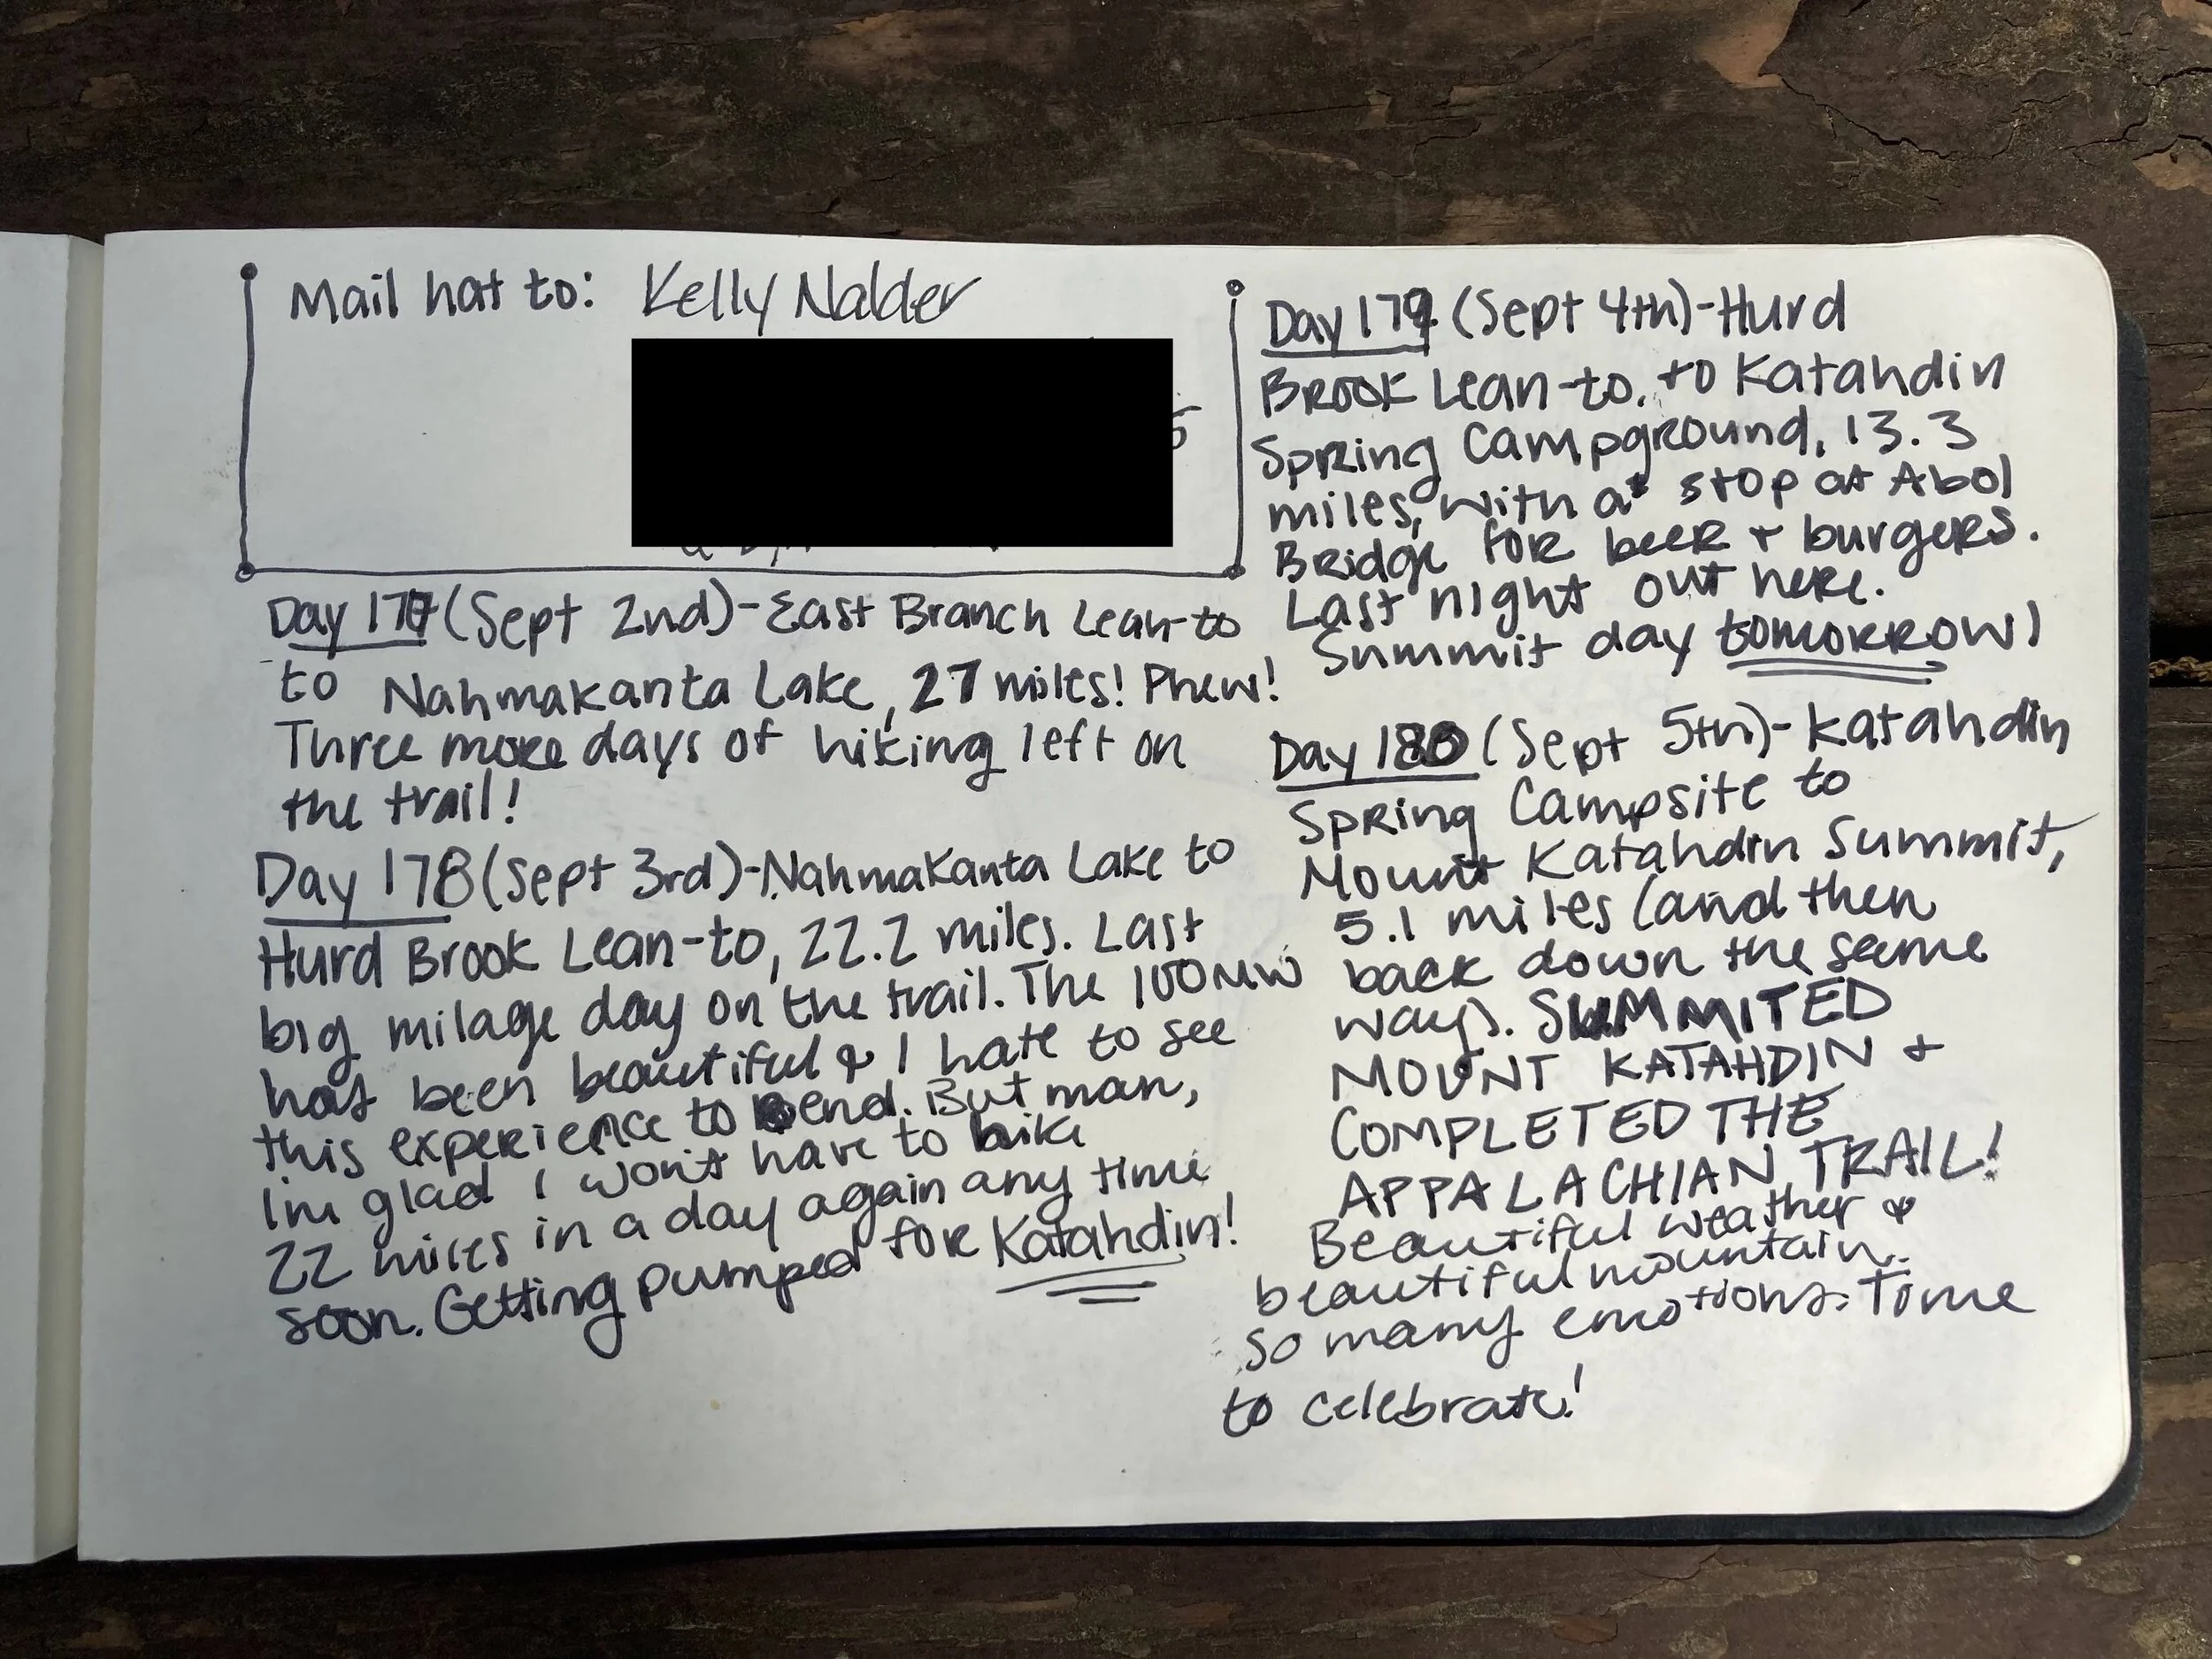 Mail hat to: Kelly Nalder
Day 177 (Sept 2nd)-East Branch Lean-to
to Nahmakanta Lake, 27 miles! Phew!
Three more days of hiking left on
the trail!
Day 178 (Sept 3rd)-Nahmakanta Lake to
Hurd Brook Lean-to, 22.2 miles. Last
big milage day on the trail. The 100MW
has been beautiful & I hate to see
this experience to end. But man,
I'm glad I won't have to hike
22 miles in a day again any time
soon. Getting pumped for Katahdin!
Day 179 (Sept 4th)-Hurd
Brook Lean-to, to Katahdin
Spring Campground, 13.3
miles, with a stop at Abol
Bridge for beer + burgers.
Last night out here.
Summit day tomorrow!
Day 180 (Sept 5th)-Katahdin
Spring Campsite to
Mount Katahdin Summit,
5.1 miles (and then
back down the same
way). SUMMITED
MOUNT KATAHDIN +
COMPLETED THE
APPALACHIAN TRAIL!
Beautiful weather &
beautiful mountain.
So many emotions. Time
to celebrate!